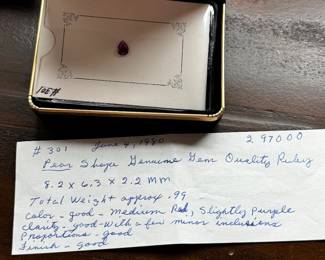 # 301 June 4, 1980 2 970.00
Pear Shape Genuine Gem Quality Ruby
8.2 x 6.3 x 2.2 MM
Total Weight approx .99
Color - good - Medium Red, Slightly Purple
Clarity - good - With a few minor inclusions
Proportions - good
Finish - good